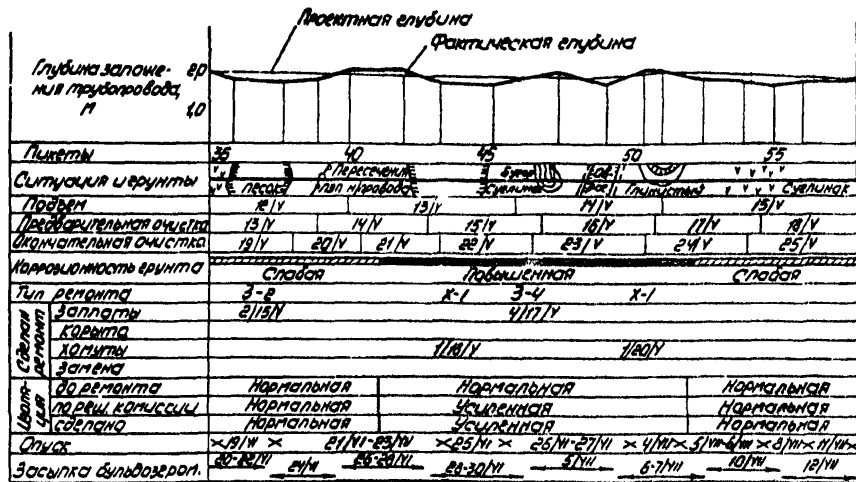 Проектная глубина
Фактическая глубина
Глубина заложе-
ния трубопровода,
м
2,0
1,0
Пикеты 35 40 45 50 55
Ситуация и грунты Песок Пересечение Суглинок Бугор Глинистый Суглинок
Подъем 12/V 13/V 14/V 15/V
Предварительная очистка 13/V 14/V 15/V 16/V 17/V 18/V
Окончательная очистка 19/V 20/V 21/V 22/V 23/V 24/V 25/V
Коррозионность грунта Слабая Повышенная Слабая
Тип ремонта З-2 Х-1 З-4 Х-1
Сделан ремонт
Заплаты 2/15/V 4/17/V
Корыта
Хомуты 1/18/V 1/20/V
Замена
Изоля-
ция
до ремонта Нормальная Нормальная Нормальная
по реш. комиссии Нормальная Усиленная Нормальная
сделано Нормальная Усиленная Нормальная
Опуск 19/VI 21/VI-23/VI 25/VI 26/VI-27/VI 4/VII 5/VII-6/VII 8/VII 11/VII
Засыпка бульдозером. 20-22/VI 24/VI 26-28/VI 28-30/VI 5/VII 6-7/VII 10/VII 12/VII